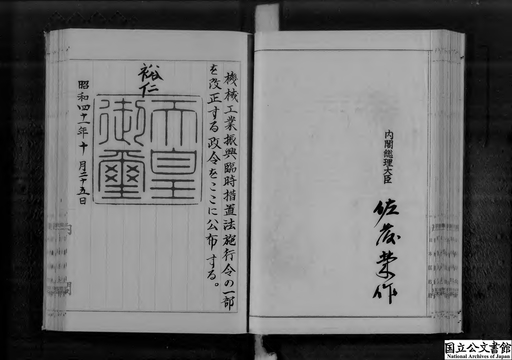 機械工業振興臨時措置法施行令の一部
を改正する政令をここに公布する。
裕仁
天皇
御璽
昭和四十一年十月二十五日
内閣総理大臣
佐藤榮作
国立公文書館
National Archives of Japan